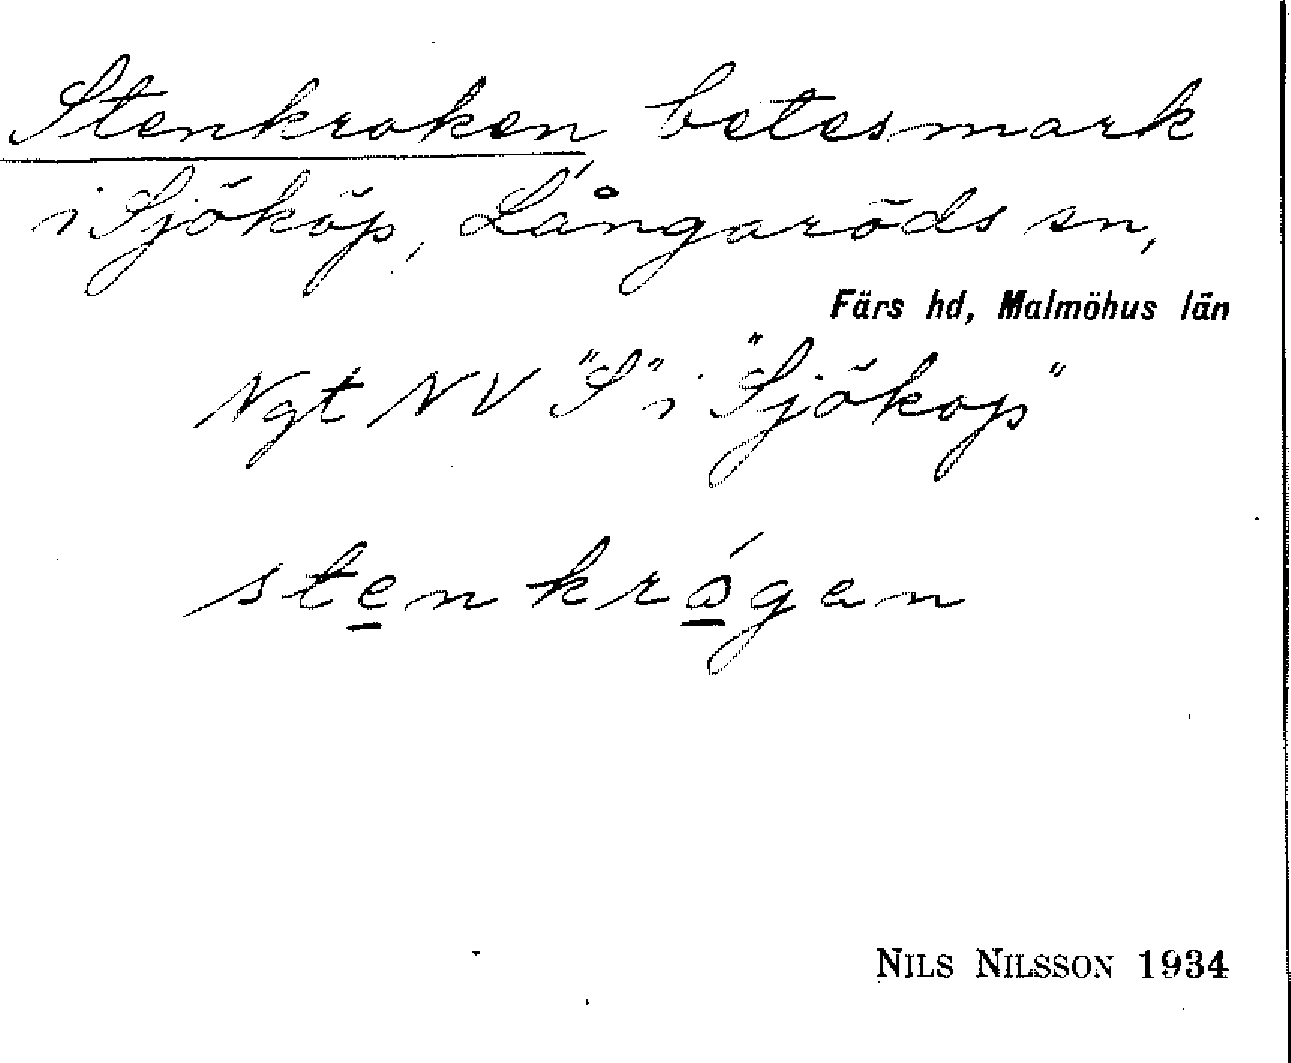 Stenkroken, betesmark
i Sjököp, Långaröds sn,
Färs hd, Malmöhus län
Ngt NV "S" i "Sjököp"
stenkrógen
NILS NILSSON 1934